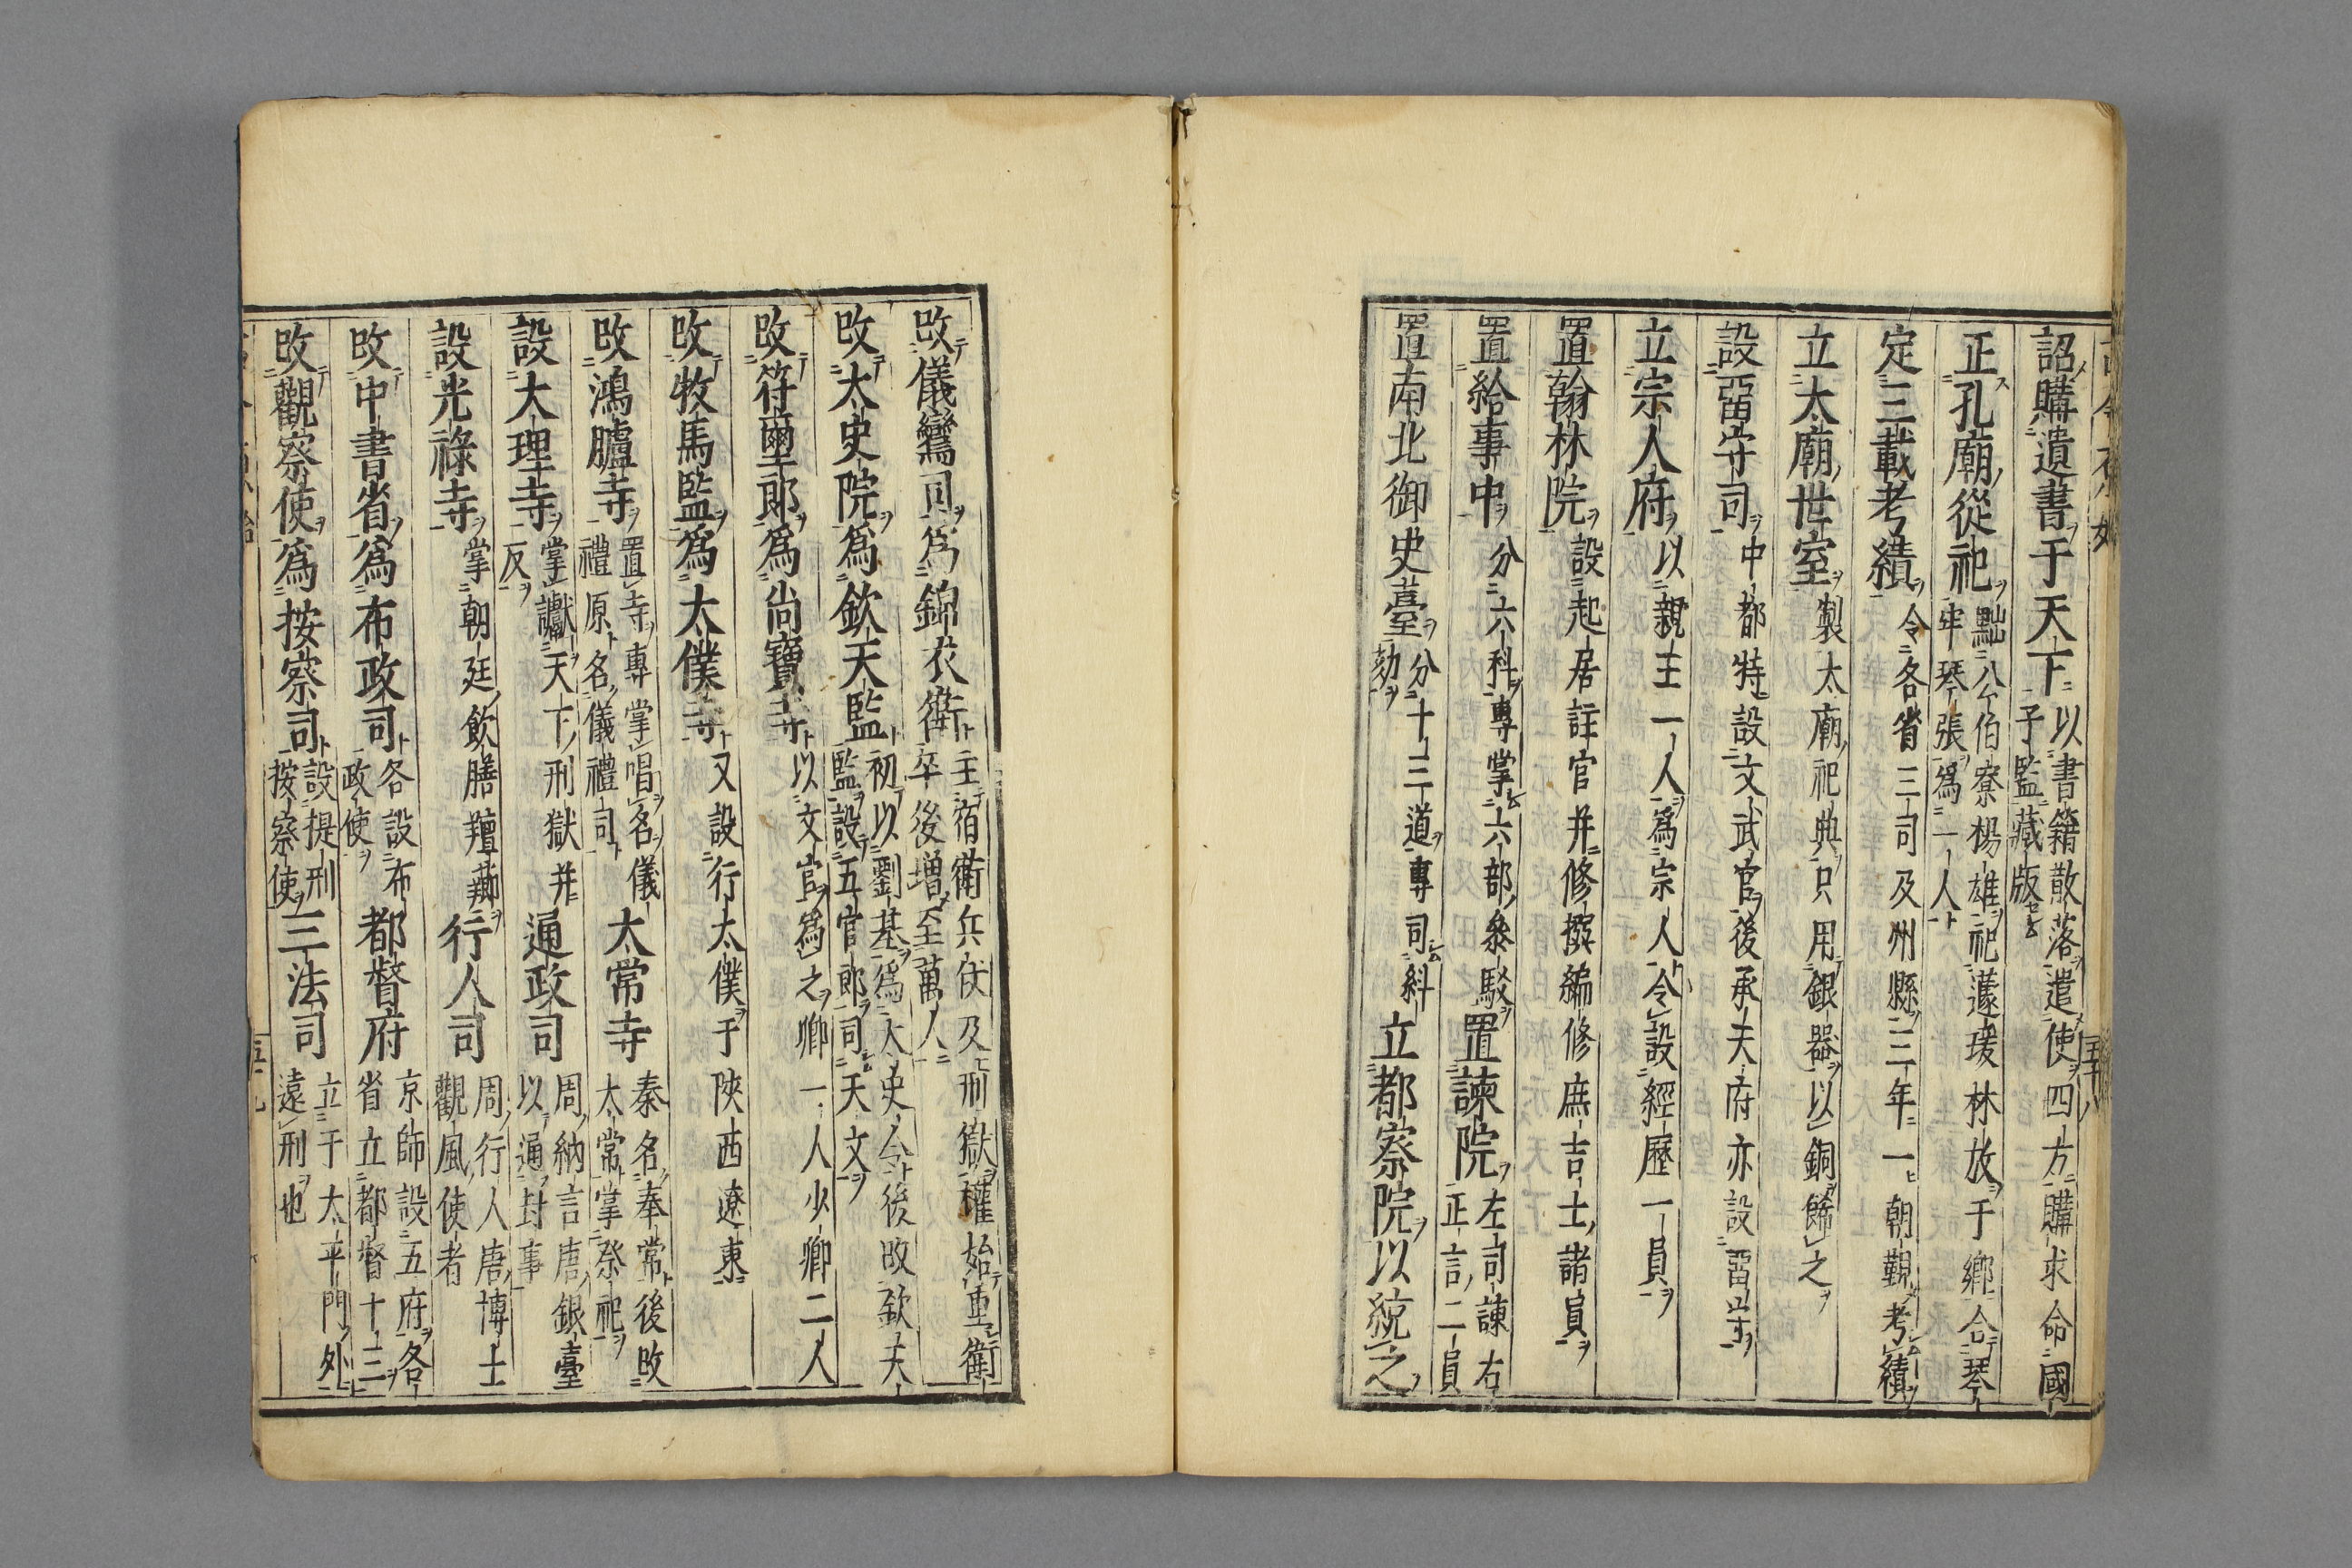 詔購遺書于天下以書籍散落遣使四方購求命國子監藏版
正孔廟從祀黜公伯寮楊雄祀蘧瑗林放于鄉合琴牢琴張爲一人
定三載考績令各省三司及州縣三年一朝覲考績
立太廟世室製太廟祀典只用銀器以銅餙之
設畱守司中都特設文武官後承天府亦設畱守
立宗人府以親王一人爲宗人令設經歷一員
置翰林院設起居註官并修撰編修庶吉士諸員
置給事中分六科專掌六部參駁置諫院左司諫右正言二員
置南北御史臺分十三道專司糾劾立都察院以統之
改儀鸞司爲錦衣衛主宿衛兵仗及刑獄權始重衛卒後增至萬人
改太史院爲欽天監初以劉基爲太史令後改欽天監設五官郎司天文
改符璽郎爲尚寶寺以文官爲之卿一人少卿二人
改牧馬監爲太僕寺又設行太僕于陝西遼東
改鴻臚寺置寺專掌唱名儀禮原名儀禮司太常寺秦名奉常後改太常掌祭祀
設大理寺掌讞天下刑獄并反通政司周納言唐銀臺以通封事
設光祿寺掌朝廷飲膳羶薌行人司周行人唐博士觀風使者
改中書省爲布政司各設布政使都督府京師設五府各省立都督十三
改觀察使爲按察司設提刑按察使三法司立于太平門外遠刑也
五十八